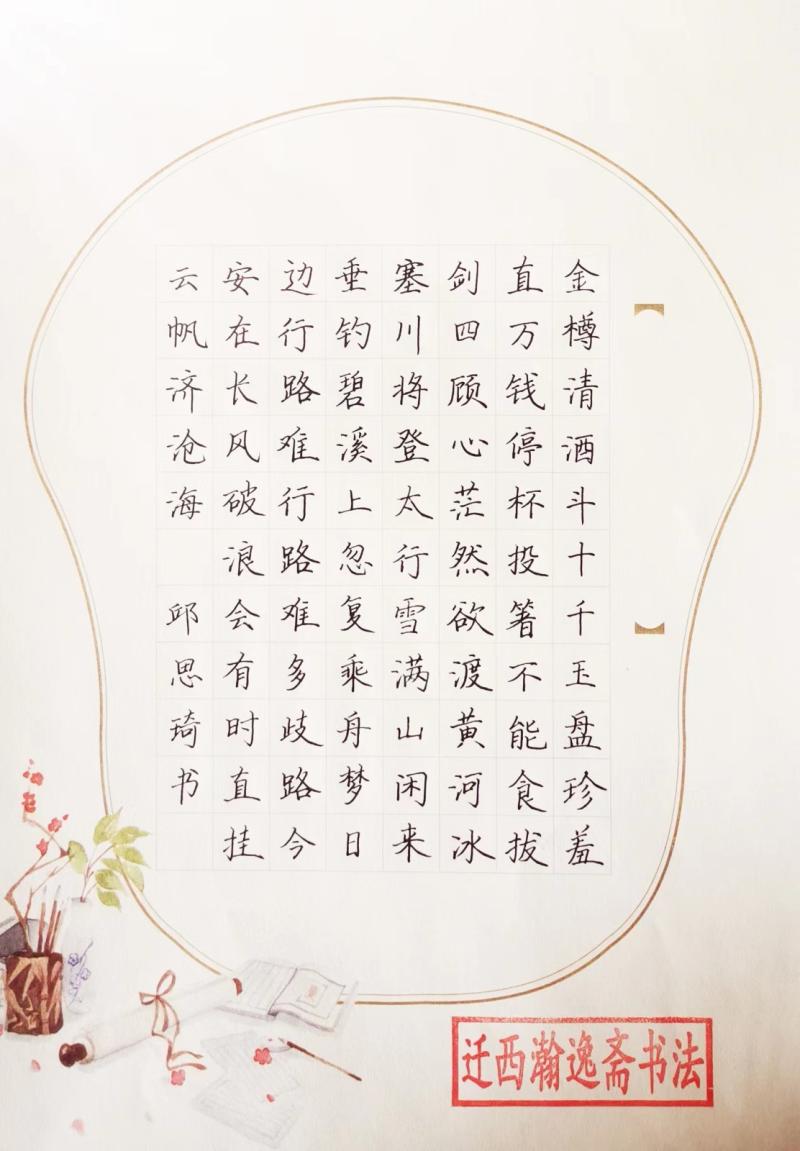 金樽清酒斗十千玉盘珍羞
直万钱停杯投箸不能食拔
剑四顾心茫然欲渡黄河冰
塞川将登太行雪满山闲来
垂钓碧溪上忽复乘舟梦日
边行路难行路难多歧路今
安在长风破浪会有时直挂
云帆济沧海 邱思琦书
迁西瀚逸斋书法